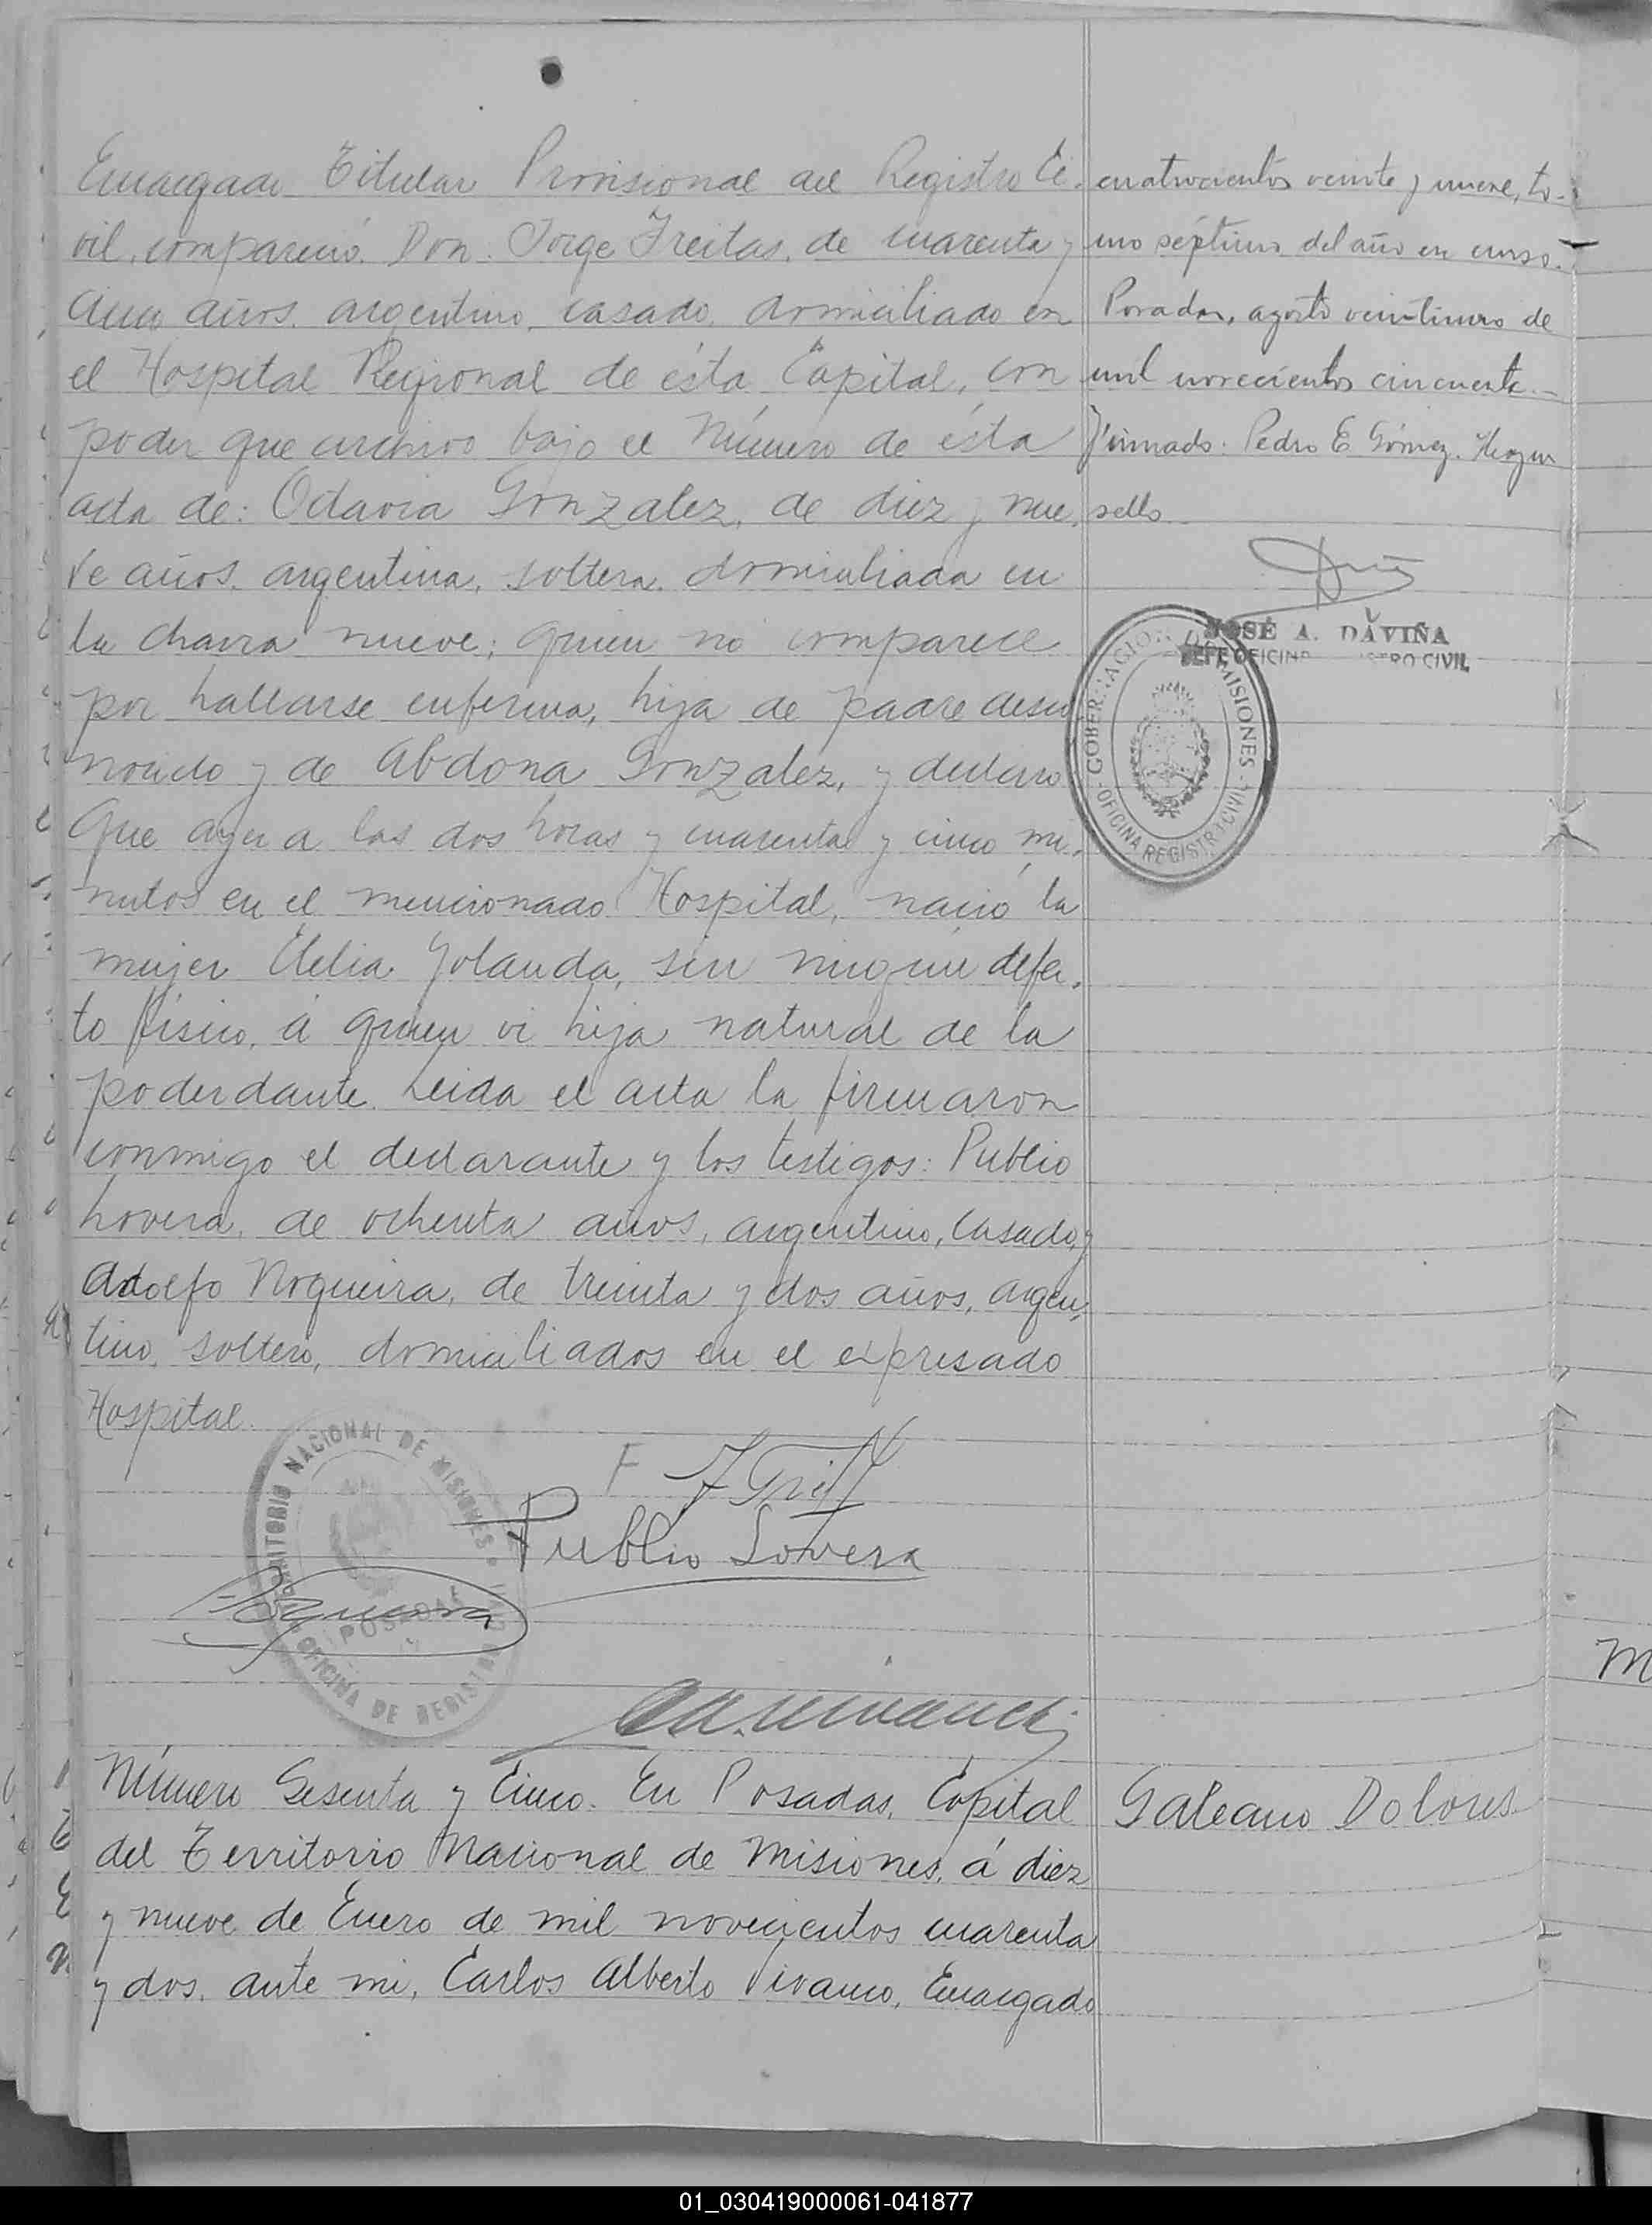 Encargado Titular Provisional del Registro Ci-
vil, compareció Don Jorge Freitas, de cuarenta y
cinco años, argentino, casado, domiciliado en
el Hospital Regional de ésta Capital, con
poder que archivo bajo el Número de ésta
acta de: Octavia Gonzalez, de diez y nue-
ve años, argentina, soltera, domiciliada en
la chacra nueve; quien no comparece
por hallarse enferma, hija de padre desco-
nocido y de Abdona Gonzalez, y declaro
Que ayer a las dos horas y cuarenta y cinco mi-
nutos en el mencionado Hospital, nació la
mujer Clelia Yolanda, sin ningun defec-
to físico, á quien vi hija natural de la
poderdante. Leida el acta la firmaron
conmigo el declarante y los testigos: Publio
Lovera, de ochenta años, argentino, casado, y
Adolfo Nogueira, de treinta y dos años, argen-
tino, soltero, domiciliados en el expresado
Hospital.
Publio Lovera
TERRITORIO NACIONAL DE MISIONES
POSADAS
OFICINA DE REGISTRO CIVIL
Número Sesenta y Cinco. En Posadas, Capital
del Territorio Nacional de Misiones, á diez
y nueve de Enero de mil novecientos cuarenta
y dos, ante mi, Carlos Alberto Vivanco, Encargado
cuatrocientos veinte y nueve, to-
mo séptimo del año en curso.
Posadas, agosto veintiuno de
mil novecientos cincuenta.-
Firmado: Pedro E. Gómez. Hay un
sello
JOSÉ A. DAVIÑA
JEFE OFICINA REGISTRO CIVIL
GOBERNACION DE MISIONES
OFICINA REGISTRO CIVIL
Galeano Dolores
01_030419000061-041877